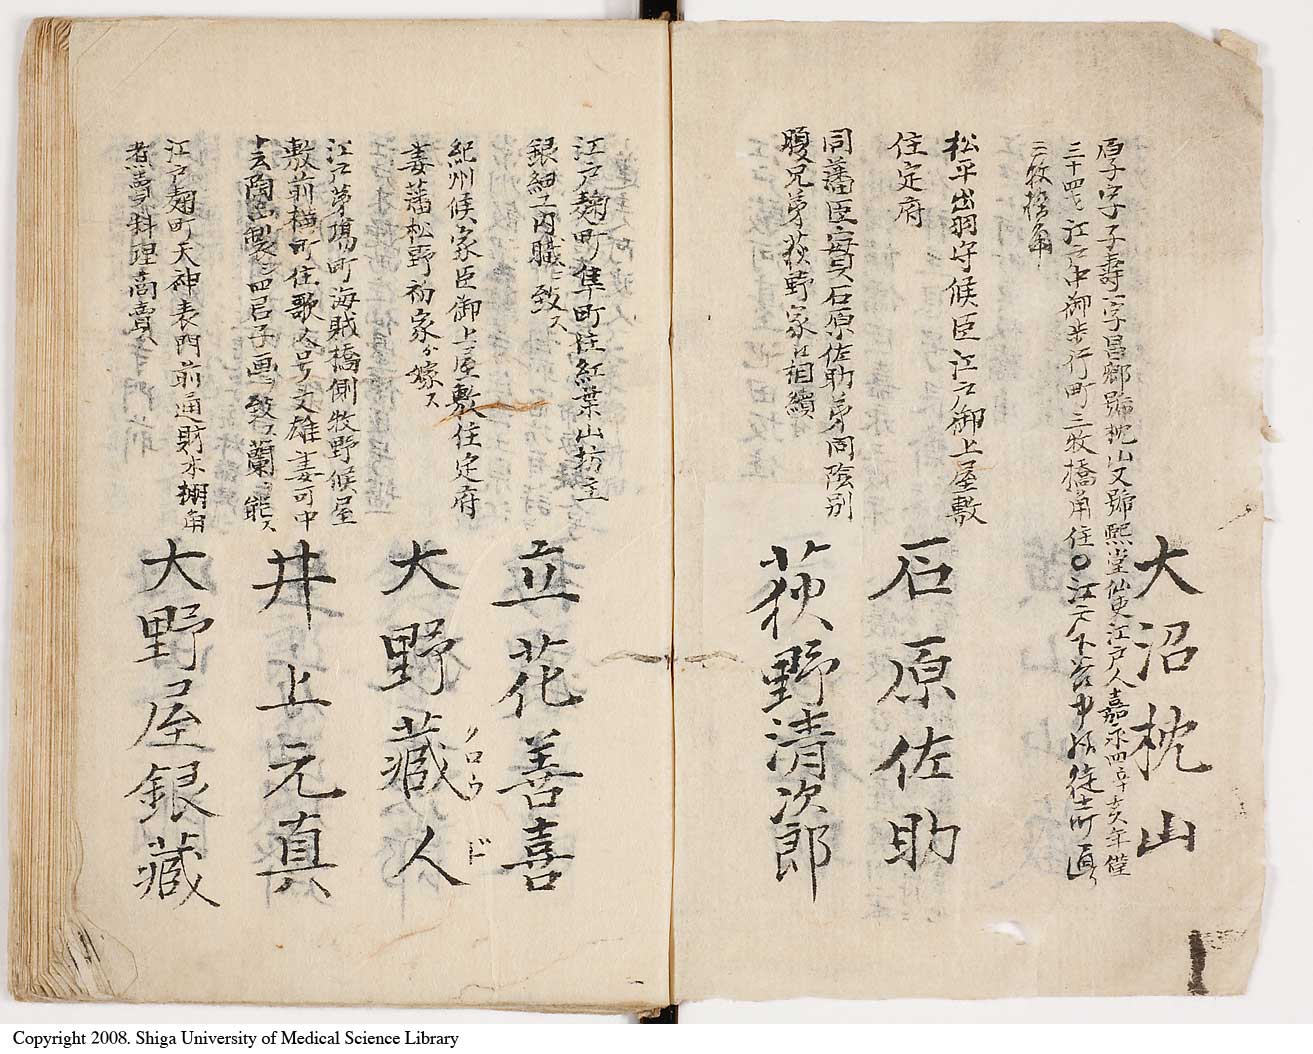 厚字子壽一字昌鄉號枕山又號熙堂仙史江戸人嘉永四辛亥年僅
三十四才江戸中御歩行町三牧橋角住〇江戸下谷中御徒士町
三牧橋角
大沼枕山
松平出羽守候臣江戸御上屋敷
住定府
石原佐助
同藩臣實ハ石原佐助弟同隂別
腹兄弟荻野家江相續
荻野清次郎
江戸麹町隼町住紅葉山坊主
銀細工内職ニ致ス
立花善喜
紀州候家臣御上屋敷住定府
妻藩松野初家ゟ嫁ス
大野藏人
クロウド
江戸茅場町海賊橋側牧野候屋
敷前横町住歌人号文雄妻可中
十云陶山製ニ四君子画ヲ致ス蘭ヲ能ス
井上元真
江戸麹町天神表門前通財木棚角
煮賣料理商賣
大野屋銀藏
Copyright 2008. Shiga University of Medical Science Library